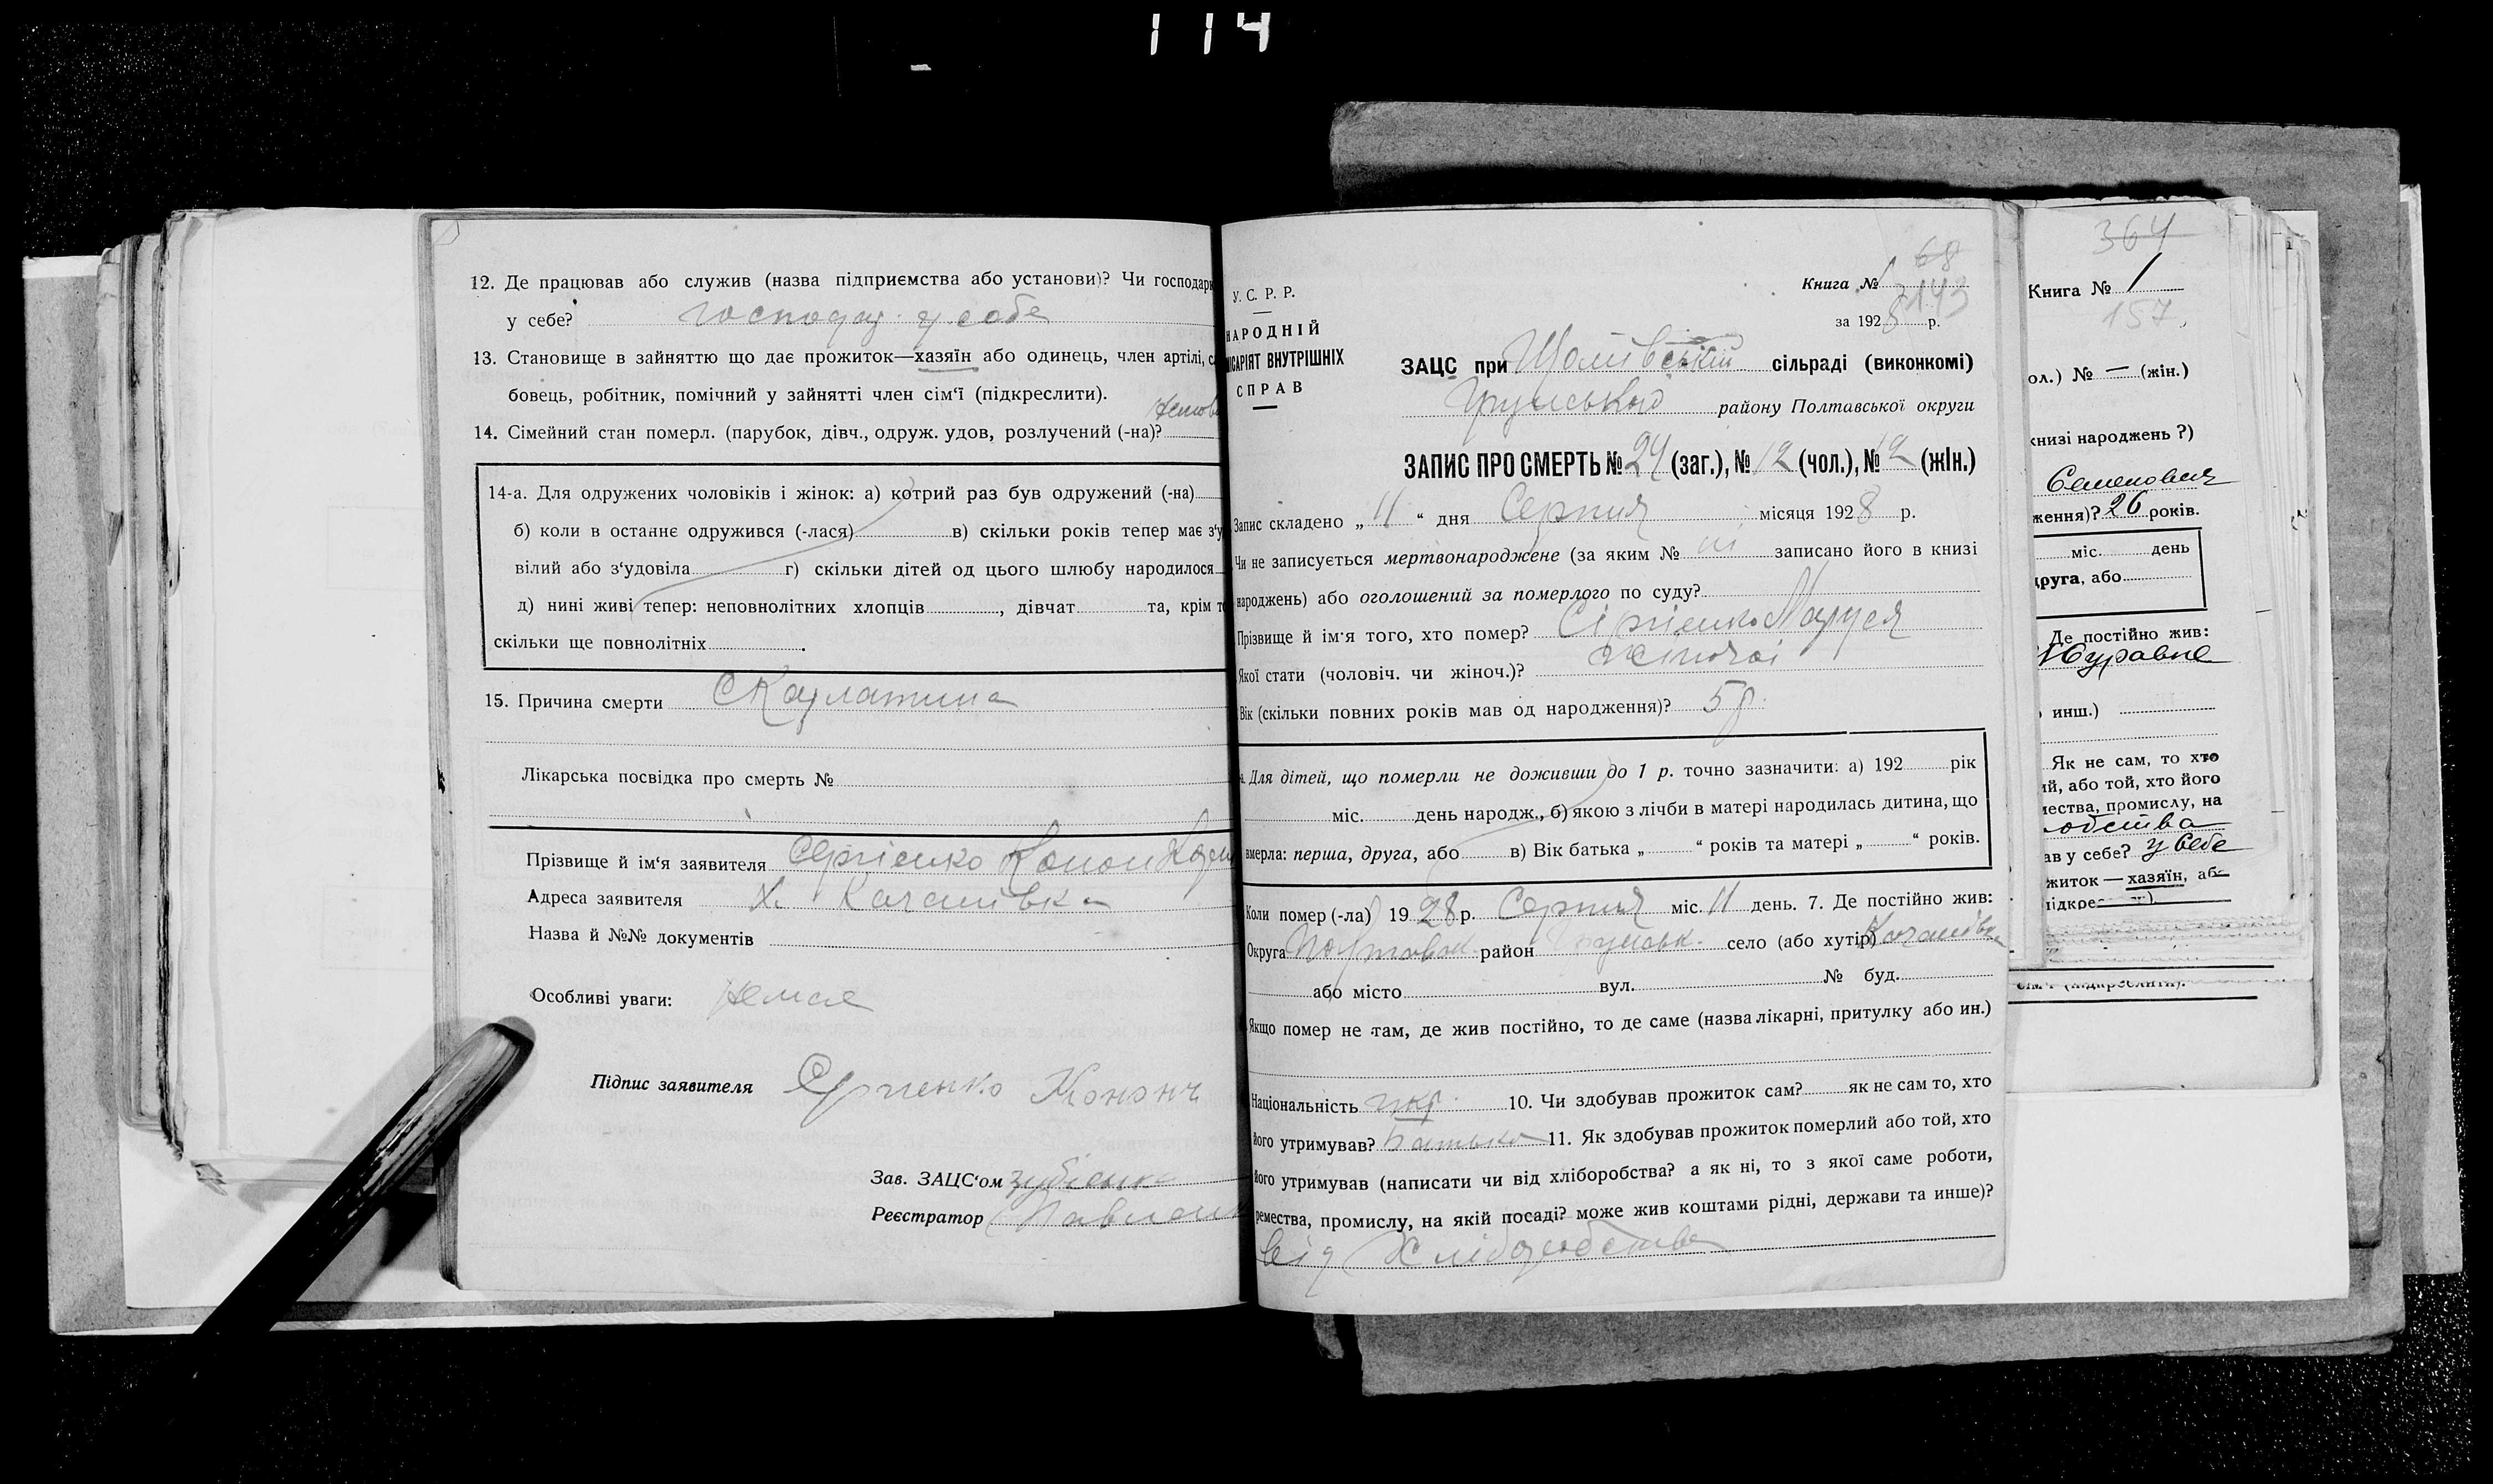 114
12. Де працював або служив (назва підприємства або установи)? Чи господарю
у себе? господар. у себе
13. Становище в зайняттю що дає прожиток—хазяїн або одинець, член артілі, с
бовець, робітник, помічний у зайнятті член сім‘ї (підкреслити).
14. Сімейний стан померл. (парубок, дівч., одруж. удов, розлучений (-на)?
14-а. Для одружених чоловіків і жінок: а) котрий раз був одружений (-на)
б) коли в останнє одружився (-лася) в) скільки років тепер має з‘у
вілий або з‘удовіла г) скільки дітей од цього шлюбу народилося
д) нині живі тепер: неповнолітних хлопців , дівчат та, крім т
скільки ще повнолітніх .
15. Причина смерти Скарлатина
Лікарська посвідка про смерть №
Прізвище й ім‘я заявителя Сергієнко Конон
Адреса заявителя х. Качанівка
Назва й №№ документів
Особливі уваги: Немає
Підпис заявителя Сергиенко Конон
Зав. ЗАЦС‘ом
Реєстратор
68
Книга № 1
3143
за 1928 р.
У. С. Р. Р.
НАРОДНІЙ
ІСАРІЯТ ВНУТРІШНІХ
СПРАВ
ЗАЦС при сільраді (виконкомі)
Грунський району Полтавської округи
ЗАПИС ПРО СМЕРТЬ № 24 (заг.), № 12 (чол.), № 12 (жін.)
Запис складено „ 11 “ дня Серпня місяця 1928 р.
Чи не записується мертвонароджене (за яким № ні записано його в книзі
народжень) або оголошений за померлого по суду?
Прізвище й ім‘я того, хто помер? Сіргієнко Маруся
Якої стати (чоловіч. чи жіноч.)? жіночої
Вік (скільки повних років мав од народження)? 5 р.
Для дітей, що померли не доживши до 1 р. точно зазначити: а) 192 рік
міс. день народж., б) якою з лічби в матері народилась дитина, що
вмерла: перша, друга, або в) Вік батька „ “ років та матері „ “ років.
Коли помер (-ла) 1928 р. Серпня міс. 11 день. 7. Де постійно жив:
Округа Полтавськ. район Грунськ. село (або хутір) Качанівка
або місто вул. № буд.
Якщо помер не там, де жив постійно, то де саме (назва лікарні, притулку або ин.)
Національність укр. 10. Чи здобував прожиток сам? як не сам то, хто
його утримував? Батько 11. Як здобував прожиток померлий або той, хто
його утримував (написати чи від хліборобства? а як ні, то з якої саме роботи,
ремества, промислу, на якій посаді? може жив коштами рідні, держави та инше)?
від Хліборобства
364
Книга № 1
157
ол.) № — (жін.)
книзі народжень ?)
Семенович
ження)? 26 років.
міс. день
друга, або
Де постійно жив:
инш.)
Як не сам, то хто
ий, або той, хто його
мества, промислу, на
ав у себе? у себе
житок — хазяїн, або
підкре
сім‘ї (підкреслити).